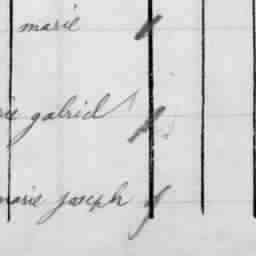 marie
rie gabriel
marie joseph